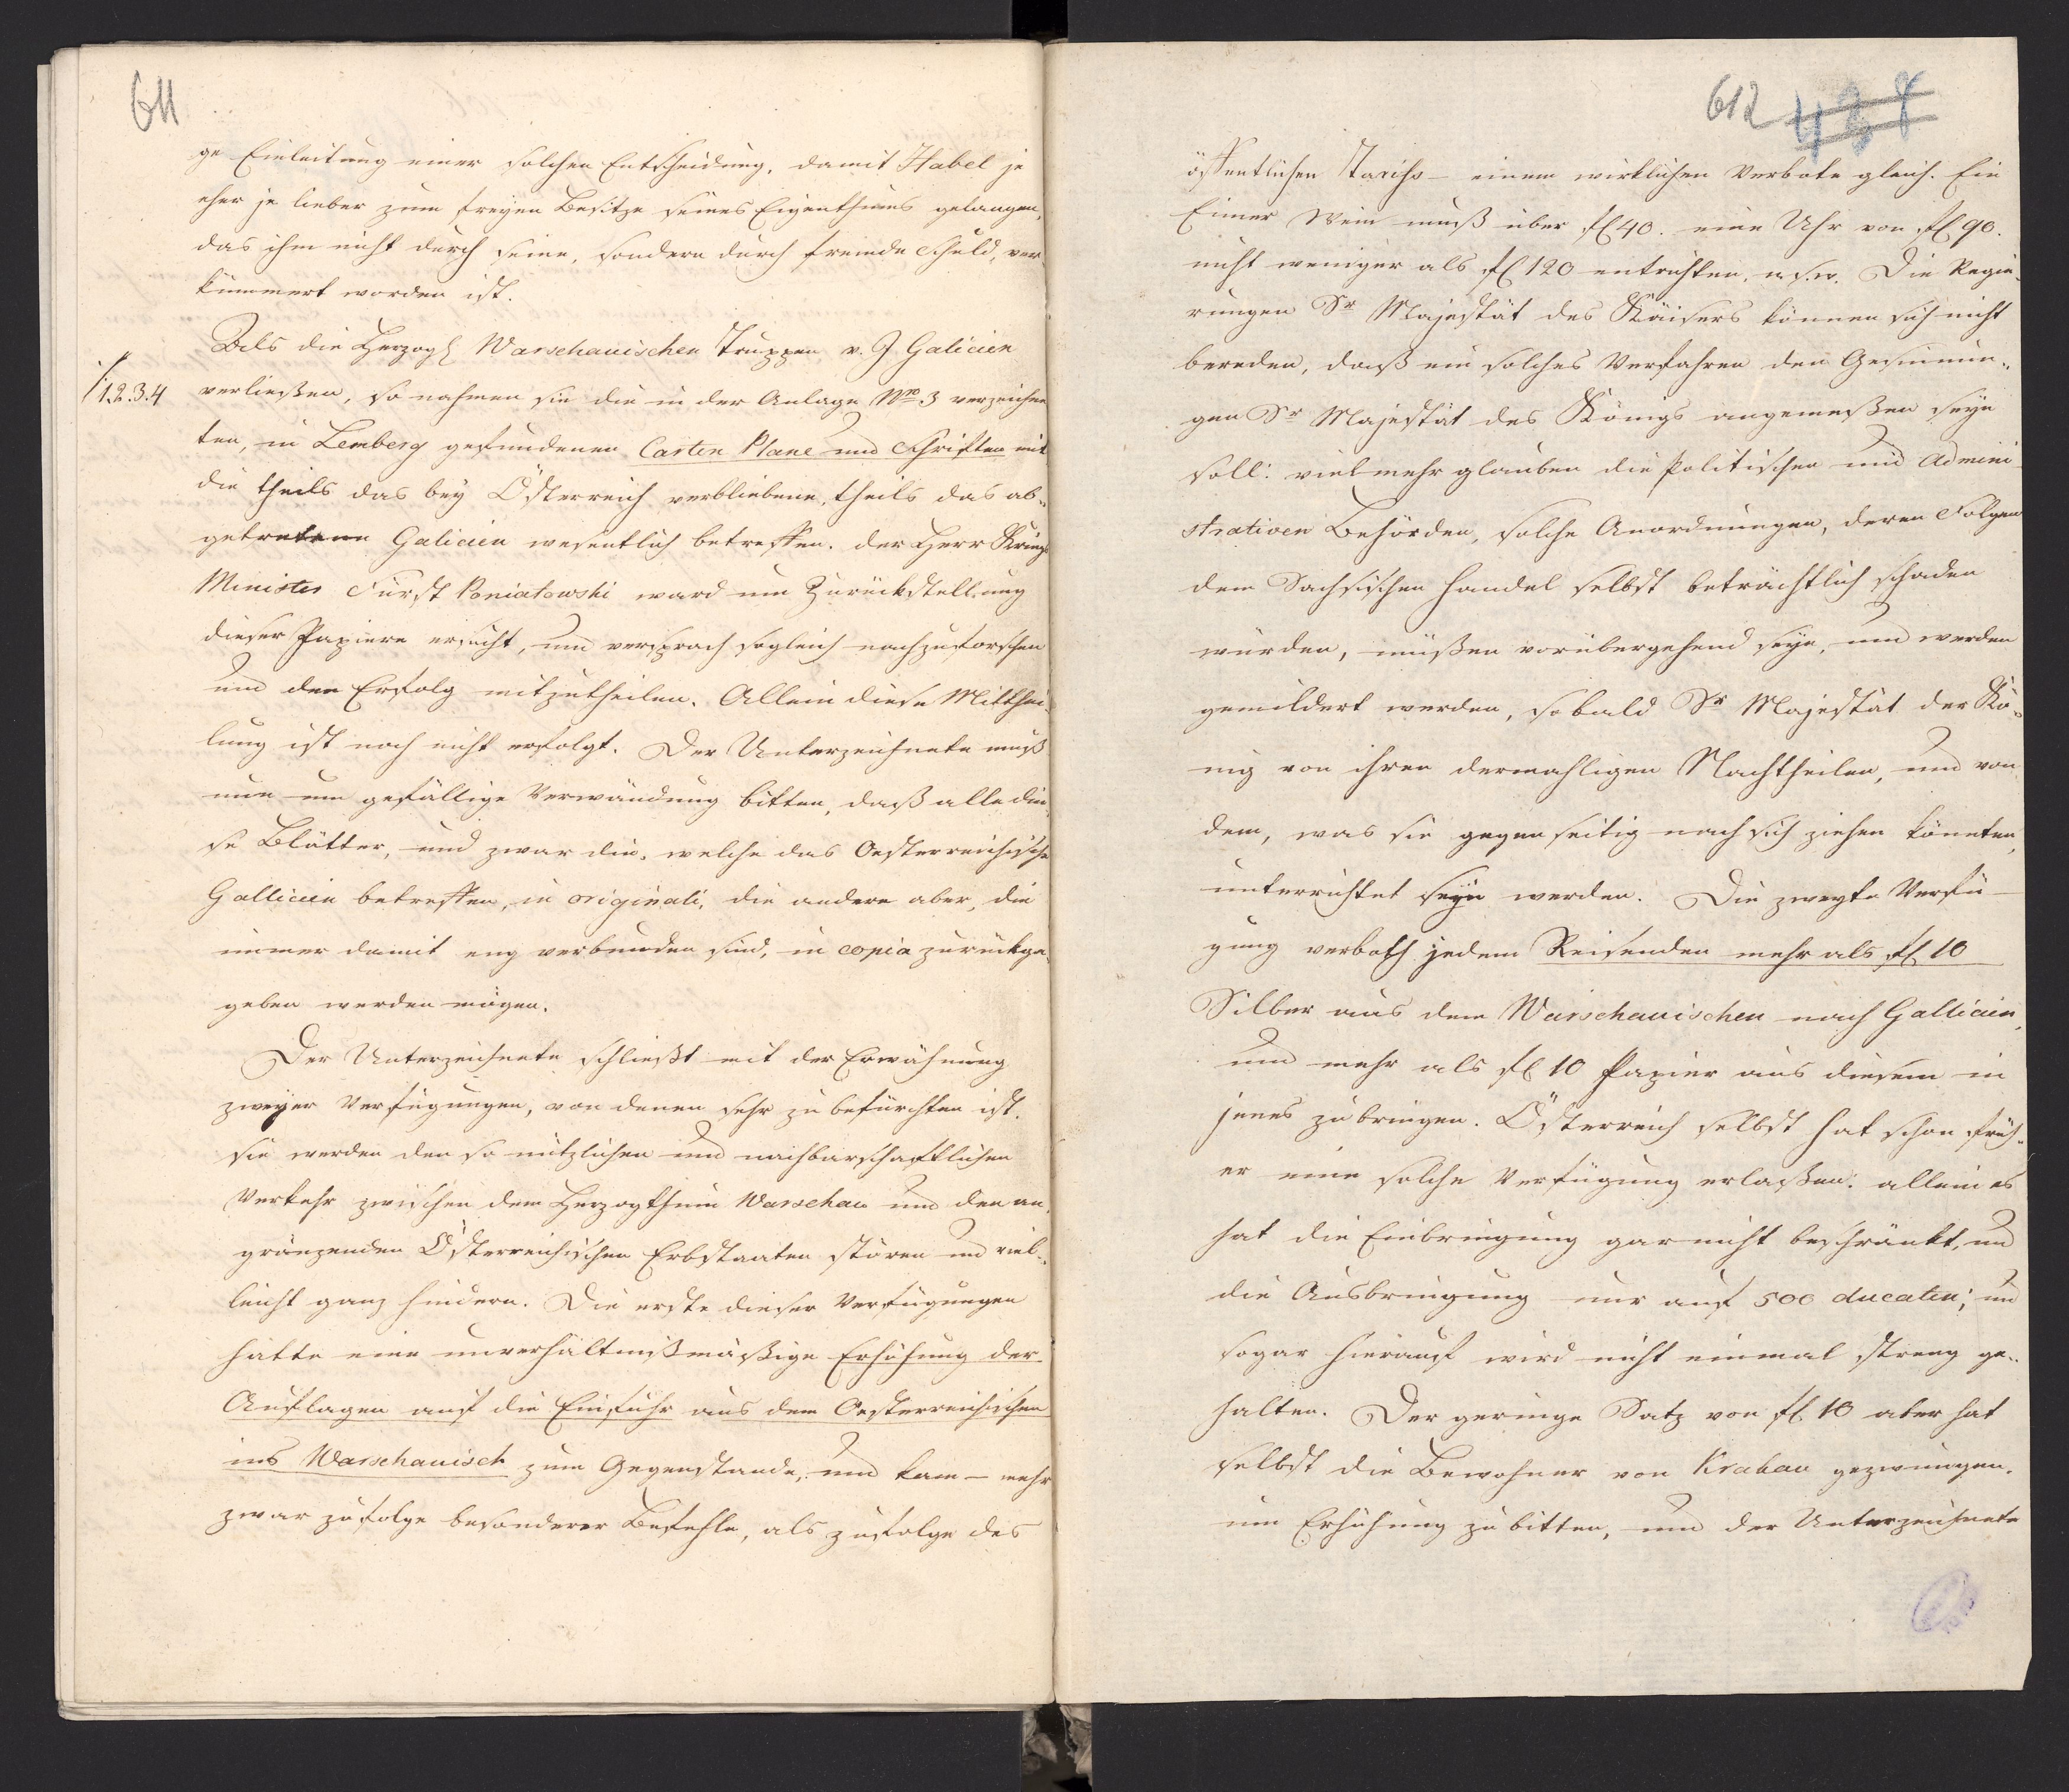 611
ge Einleitung einer solchen Entscheidung, damit Habel je
eher je lieber zum freyen Besitze seines Eigenthums gelangen,
das ihm nicht durch seine, sondern durch fremde Schuld, ver-
kümmert worden ist.
Als die Herzogl Warschauischen Truppen v. J. Galicien
/: 1.2.3.4
verließen, so nahmen sie die in der Anlage Nro 3 verzeichne
ten, in Lemberg gefundenen Carten Plane und Schriften mit
die theils das bey Österreich verbliebene, theils das ab-
getretene Galicien wesentlich betreffen. Der Herr Kriegs
Minister Fürst Poniatowski ward um Zurückstellung
dieser Papiere ersucht, und versprach sogleich nachzuforschen
und den Erfolg mitzutheilen. Allein diese Mitthei-
lung ist noch nicht erfolgt. Der Unterzeichnete muß
nun um gefällige Verwändung bitten, daß alle die-
se Blätter, und zwar die, welche das Oesterreichische
Gallicien betreffen, in originali, die andere aber, die
immer damit eng verbunden sind, in copia zurückge-
geben werden mögen.
Der Unterzeichnete schließt mit der Erwähnung
zweyer Verfügungen, von denen sehr zu befürchten ist,
sie werden den so nützlichen und nachbarschaftlichen
Verkehr zwischen dem Herzogthum Warschau und den an-
gränzenden Österreichischen Erbstaaten stören und viel-
leicht ganz hindern. Die erste dieser Verfügungen
hatte eine unverhältnißmäßige Erhöhung der
Auflagen auf die Einfuhr aus dem Oesterreichischen
ins Warschauisch zum Gegenstande, und kam - mehr
zwar zufolge besonderer Befehle, als zufolge des
612 434
öffentlichen Tarifs - einem wirklichen Verbote gleich. Ein
Eimer Wein muß über fl 40. eine Uhr von fl 90.
nicht weniger als fl 120 entrichten, u.s.w. Die Regie-
rungen Sr Majestät des Kaisers können sich nicht
bereden, daß ein solches Verfahren den Gesinnun-
gen Sr Majestät des Königs angemeßen seyn
soll: vielmehr glauben die Politischen und Admini-
strativen Behörden, solche Anordnungen, deren Folgen
dem Sachsischen Handel selbst beträchtlich schaden
würden, müßen vorübergehend seyn, und werden
gemildert werden, sobald Sr Majestät der Kö-
nig von ihren dermahligen Nachtheilen, und von
dem, was sie gegenseitig nach sich ziehen könnten,
unterrichtet seyn werden. Die zweyte Verfü-
gung verboth jedem Reisenden mehr als fl 10
Silber aus dem Warschauischen nach Gallicien,
und mehr als fl 10 Papier aus diesem in
jenes zu bringen. Österreich selbst hat schon früh-
er eine solche Verfügung erlaßen: allein es
hat die Einbringung gar nicht beschränkt, und
die Ausbringung nur auf 500 ducaten; und
sogar hierauf wird nicht einmal streng ge-
halten. Der geringe Satz von fl 10 aber hat
selbst die Bewohner von Krakau gezwungen,
um Erhöhung zu bitten, und der Unterzeichnete